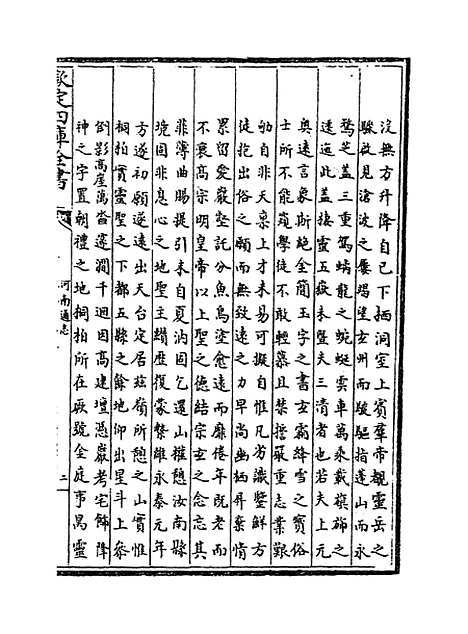 沒無方升降自已下栖洞室上賓羣帝覩靈岳之
驟啟見滄波之屢竭望玄州而駿驅指蓬山而永
騖芝蓋三重駕螭龍之蜿蜒雲車萬乘載旗斾之
逶迤此蓋棲靈五嶽未暨夫三清者也若夫上元
奥遠言象斯絶金簡玉字之書玄霜絳雪之寳俗
士所不能窺學徒不敢輕慕且禁誓嚴重志業艱
劬自非天禀上才未易可擬自惟凡劣識鑒鮮方
徒抱出俗之願而無致遠之力早尚幽栖屏棄情
累留愛巖壑託分魚鳥塗愈遠而靡倦年既老而
不衰高宗明皇帝以上聖之德結宗玄之念忘其
菲薄曲賜提引末自夏汭固乞還山權憩汝南縣
境固非息心之地聖主纘歷復蒙縶維永泰元年
方遂初願遂遠出天台定居兹嶺所憩之山實惟
桐柏實靈聖之下都五縣之餘地仰出星斗上參
倒影高崖萬沓邃澗千迴因高建壇憑巖考宅飾降
神之宇置朝禮之地桐柏所在厥號金庭事昺靈
欽定四庫全書
河南通志
二